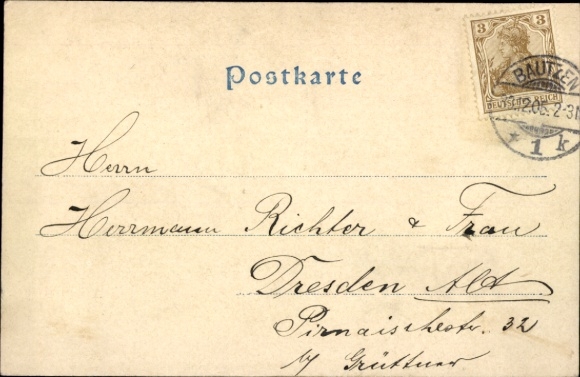 Postkarte
3 3
DEUTSCHES REICH
BAUTZEN
12.05. 2-3N
* 1 k
Herrn
Herrmann Richter & Frau
Dresden Alt
Pirnaischestr. 32
b/ Grüttner